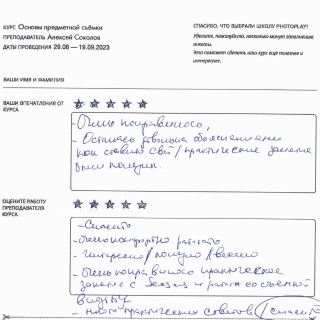 КУРС Основы предметной съёмки
ПРЕПОДАВАТЕЛЬ Алексей Соколов
ДАТЫ ПРОВЕДЕНИЯ 29.08 — 19.09.2023
СПАСИБО, ЧТО ВЫБРАЛИ ШКОЛУ PHOTOPLAY!
Уделите, пожалуйста, несколько минут заполнению
анкеты.
Это поможет сделать наш курс ещё полезнее и
интереснее.
ВАШИ ИМЯ И ФАМИЛИЯ
ВАШИ ВПЕЧАТЛЕНИЯ ОТ
КУРСА
- Очень понравилось,
- Осталась довольна объяснением
как ставить свет / практические занятия
были полезны.
ОЦЕНИТЕ РАБОТУ
ПРЕПОДАВАТЕЛЯ
КУРСА
- Спасибо
- Очень комфортно работать
- Интересно / полезно / весело
- Очень понравилось практическое
занятие с и работа со съемкой
- много практических советов / спасибо